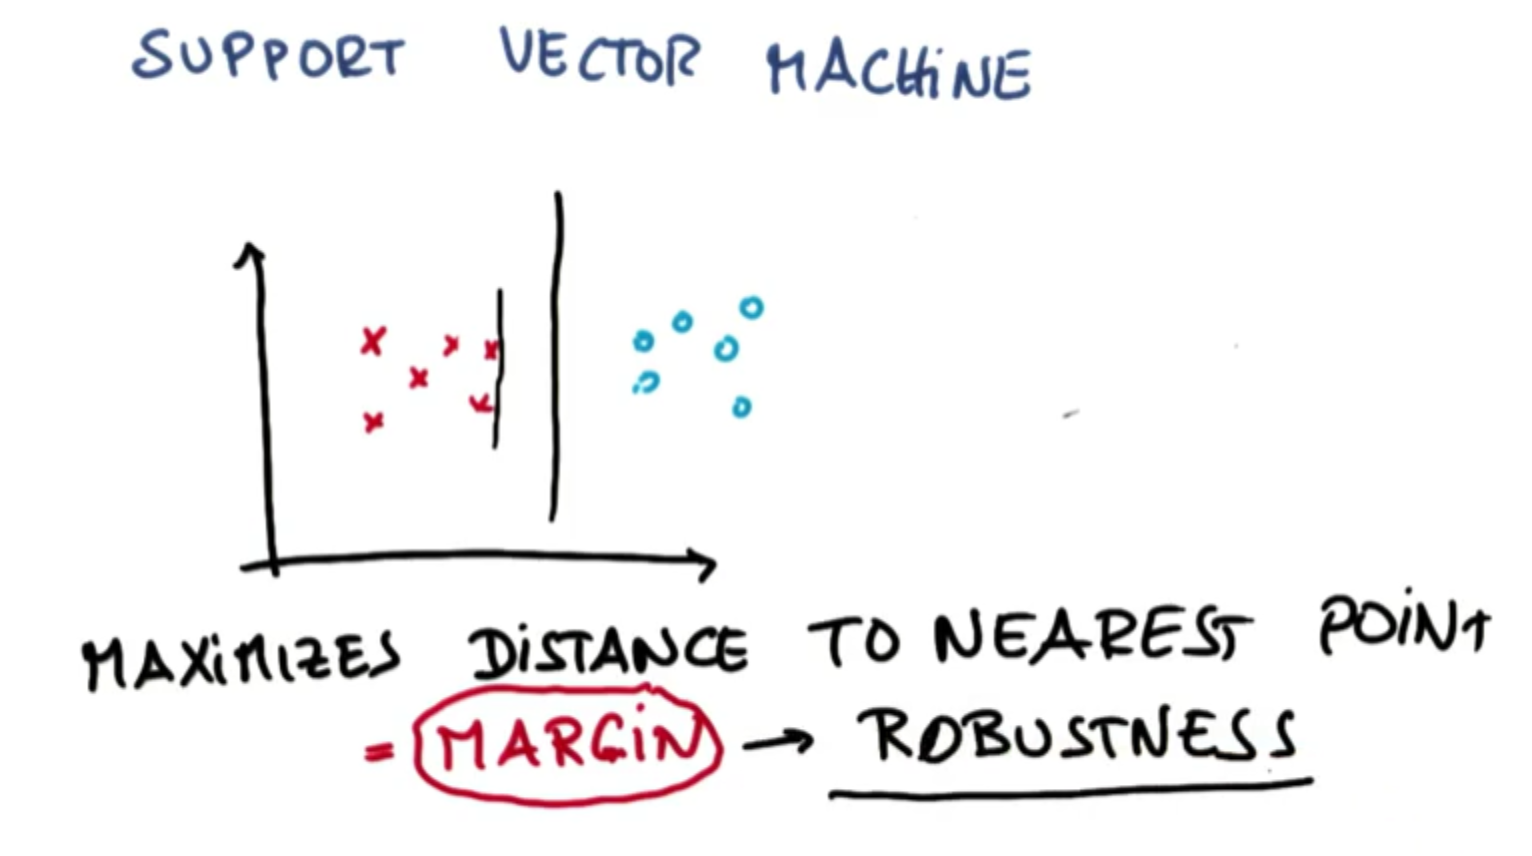 SUPPORT VECTOR MACHINE
MAXIMIZES DISTANCE TO NEAREST POINT
= MARGIN → ROBUSTNESS